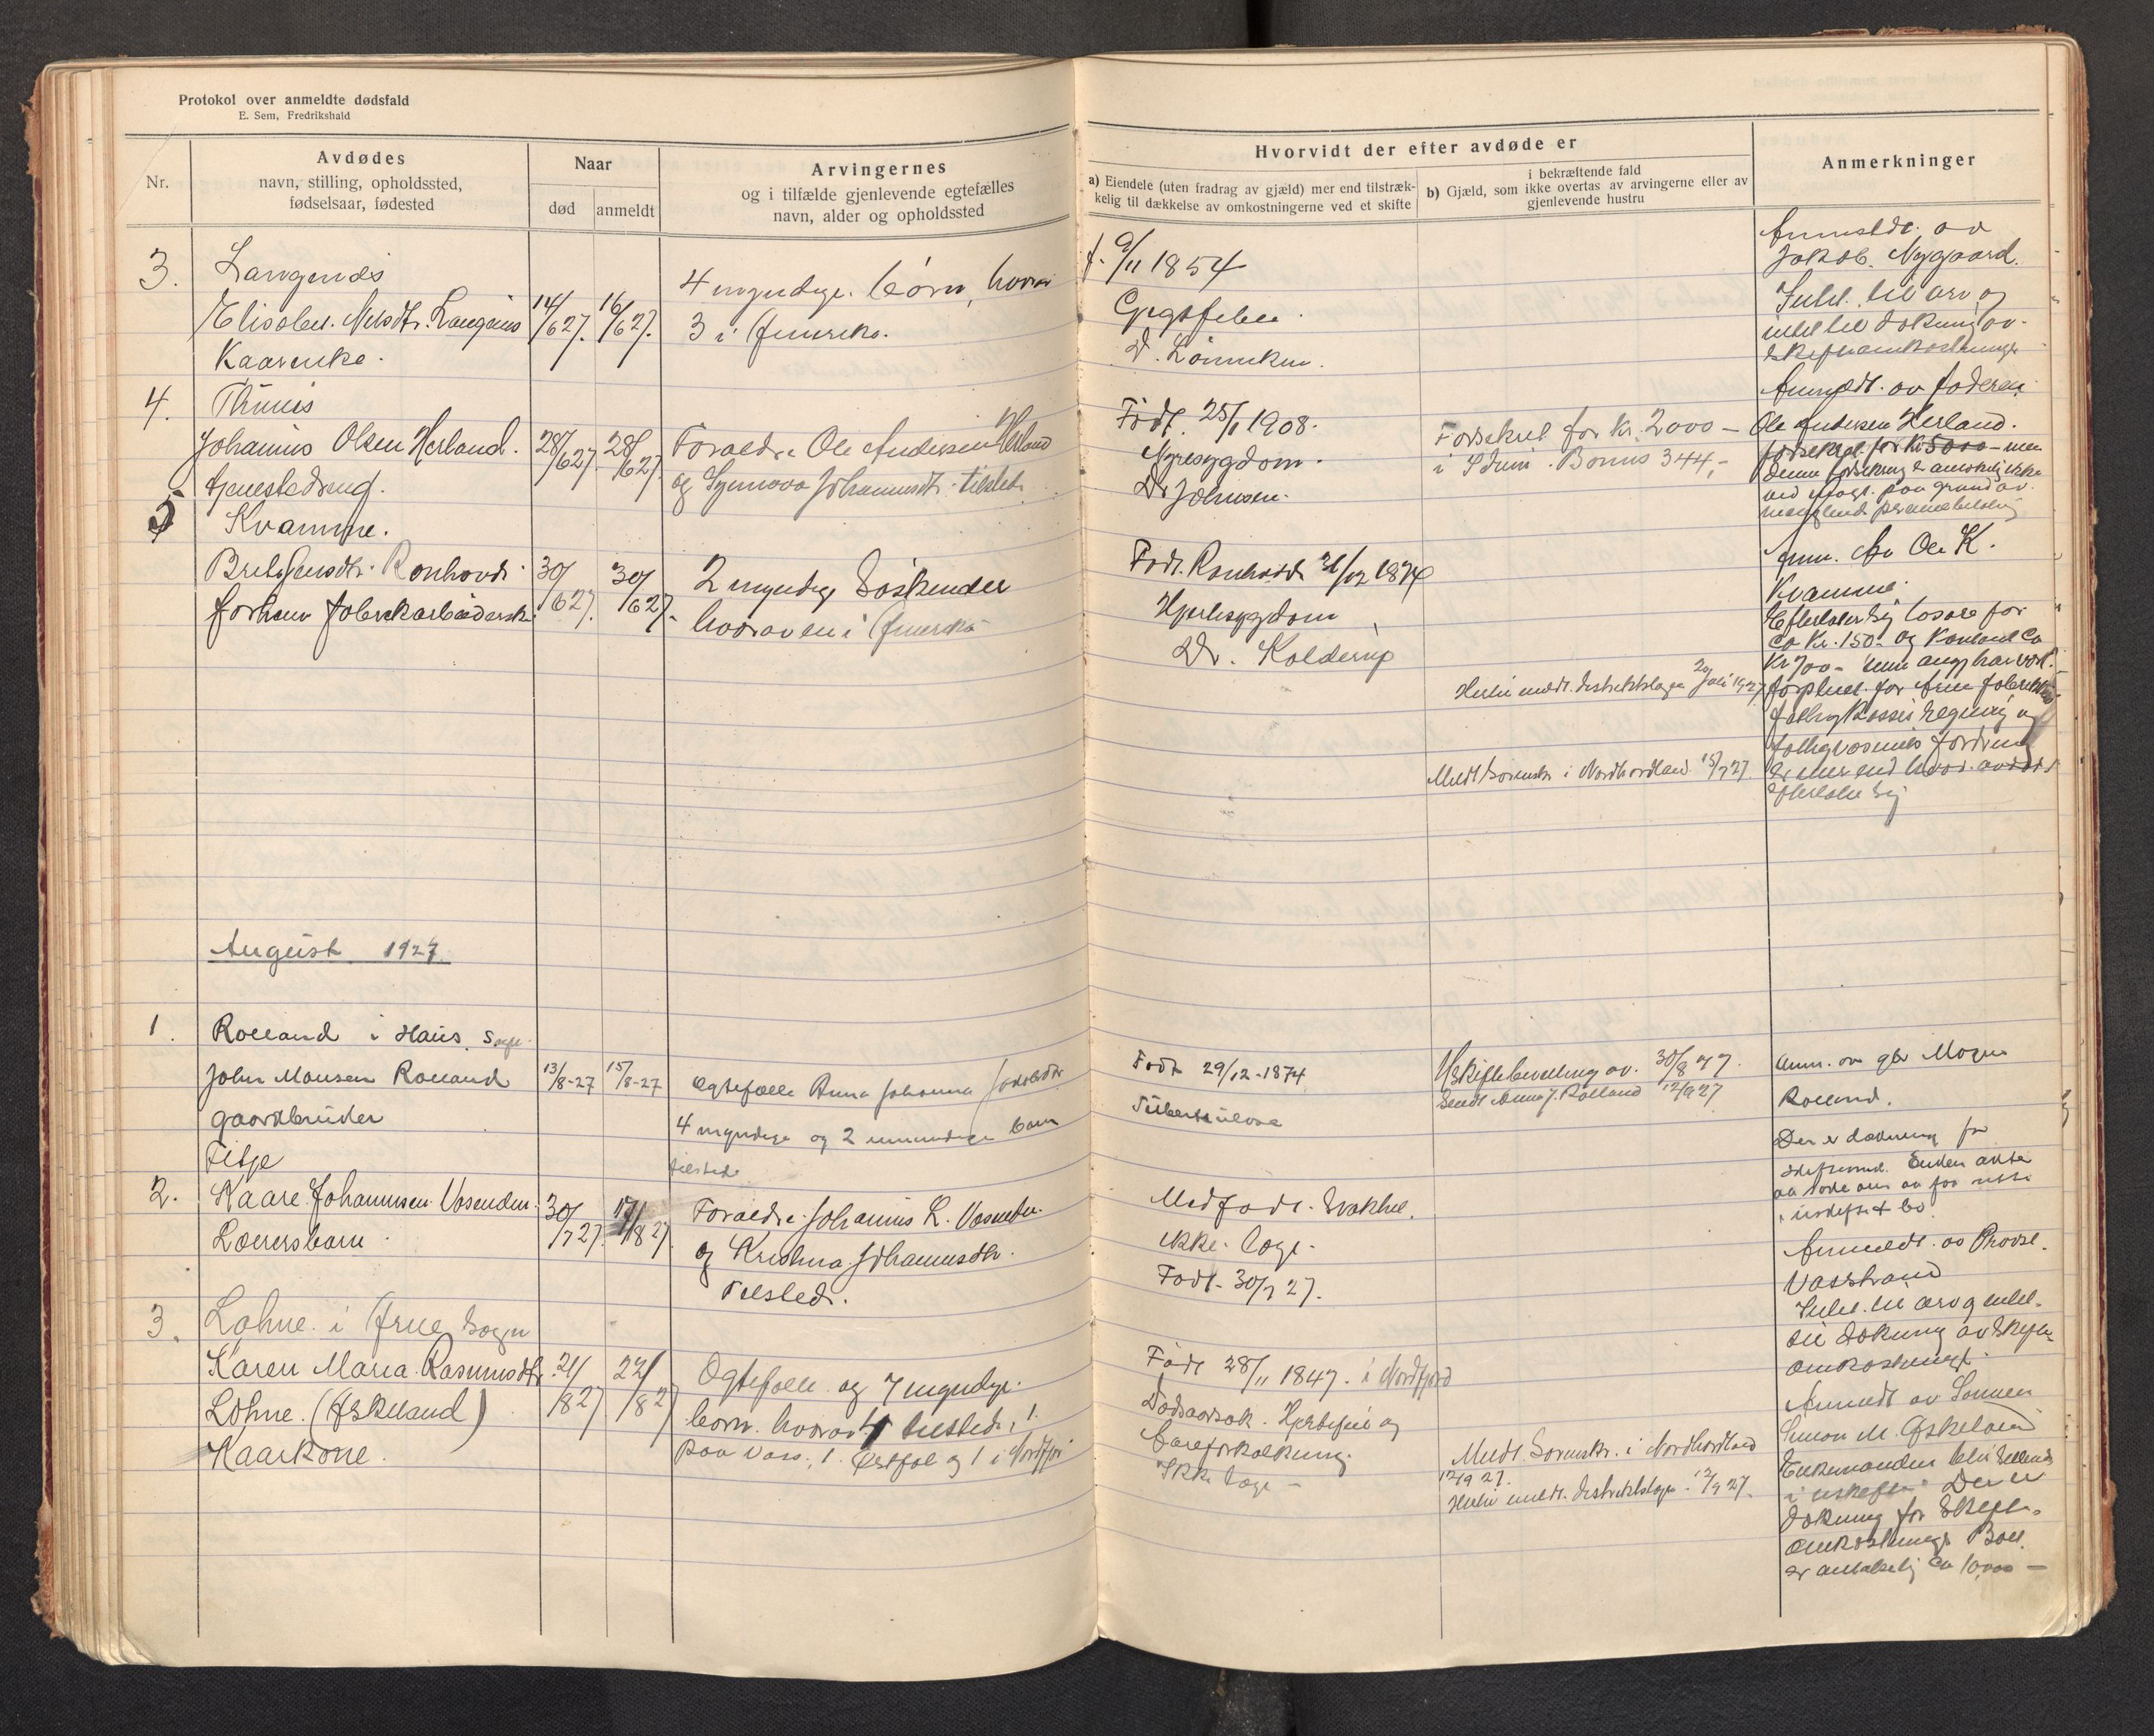 Protokol over anmeldte dødsfald
E. Sem, Fredrikshald
Nr.
Avdødes
navn, stilling, opholdssted,
fødselsaar, fødested
Naar
død
anmeldt
Arvingernes
og i tilfælde gjenlevende egtefælles
navn, alder og opholdssted
3.
Langenes
Elisabet Nilsdtr. Langenes
Kaarenke.
14/6 27.
16/6 27.
4 myndige børn, hvorav
3 i Amerika.
4.
Thunes
Johannes Olsen Herland.
tjenestedreng.
28/6 27.
28/6 27.
Foraeldre Ole Andersen Herland
og Synnøva Johannesdtr. tilsted.
5
Kvamme.
Brita Jensdtr. Ronhovde
forhenv. fabrikarbeiderske.
30/6 27.
30/6 27.
2 myndige søskender
hvorav en i Amerika
August 1927.
1.
Rolland i Haus Sogn
John Monsen Rolland
gaardbruker
Fitje
13/8-27
15/8-27
Egtefælle Anna Johanna
4 myndige og 2 umyndige barn
tilstede
2.
Kaare Johannesen Vasenden.
Lærersbarn.
30/7 27.
17/8 27.
Foraeldre Johannes L. Vasenden.
og Kristina Johannesdtr.
Tilsted.
3.
Lohne i Arne Sogn
Karen Maria Rasmusdtr.
Lohne. (Askeland)
Kaarkone.
21/8 27
22/8 27
Egtefælle og 7 myndige
born. hvorav 4 tilstede, 1
paa Voss, 1 Østfol og 1 i Nordfjor
Hvorvidt der efter avdøde er
a) Eiendele (uten fradrag av gjæld) mer end tilstræk-
kelig til dækkelse av omkostningerne ved et skifte
i bekræftende fald
b) Gjæld, som ikke overtas av arvingerne eller av
gjenlevende hustru
Anmerkninger
f. 9/11 1854
D. Lønneken.
Anmeldt av
Jakob Nygaard.
Intet til arv og
intet til dækning av
skifteomkostninger
Født 25/1 1908.
Nyresygdom.
Dr Johnsen.
Forsikret for kr. 2000 —
i Idun. Bonus 344,-
Anmeldt av faderen
Ole Andersen Herland.
forsikret for kr 5000 - men
denne forsikring er ikke
paa grund av
manglende præmiebetaling
Født Ronhovde 31/12 1874
Hjertesygdom
Dr. Kolderup
Anm. av Ole K.
Kvamme.
Efterlater sig løsøre for
ca kr. 150- og kontant ca
kr 700-
forpleiet for Arne
fattigkasses regning og
fattigvæsenets fordring
er mer end hvad avdøde
efterlater sig
Herli meldt distriktslægen 2/Juli 1927
Meldt Sorenskr. i Nordhordland 15/7 27.
Født 29/12-1874
Tuberkulose
Uskiftebevilling av. 30/8 27.
Sendt Anna J. Rolland 12/9 27
Anm. av gbr Mogn
Rolland.
Der er dækning for
skifteomk. Enken akter
aa søke om aa faa sitte
i uskiftet bo.
Medfødt svakhet.
ikke læge.
Født 30/7 27.
Anmeldt av Provst
Vasstrand
Intet til arv og intet
til dækning av skifte-
omkostninger.
Født 28/11 1847. i Nordfjord
Dødsaarsak. Hjertefeil og
aareforkalkning.
Ikke læge -
Meldt Sorenskr. i Nordhordland
12/9 27.
Herli meldt distriktslægen 12/9 27.
Anmeldt av sønnen
Simon M. Askeland
Enkemanden blir sittende
i uskifte. Der er
dækning for skifte-
omkostninger Boet
er antakelig ca 10,000 —